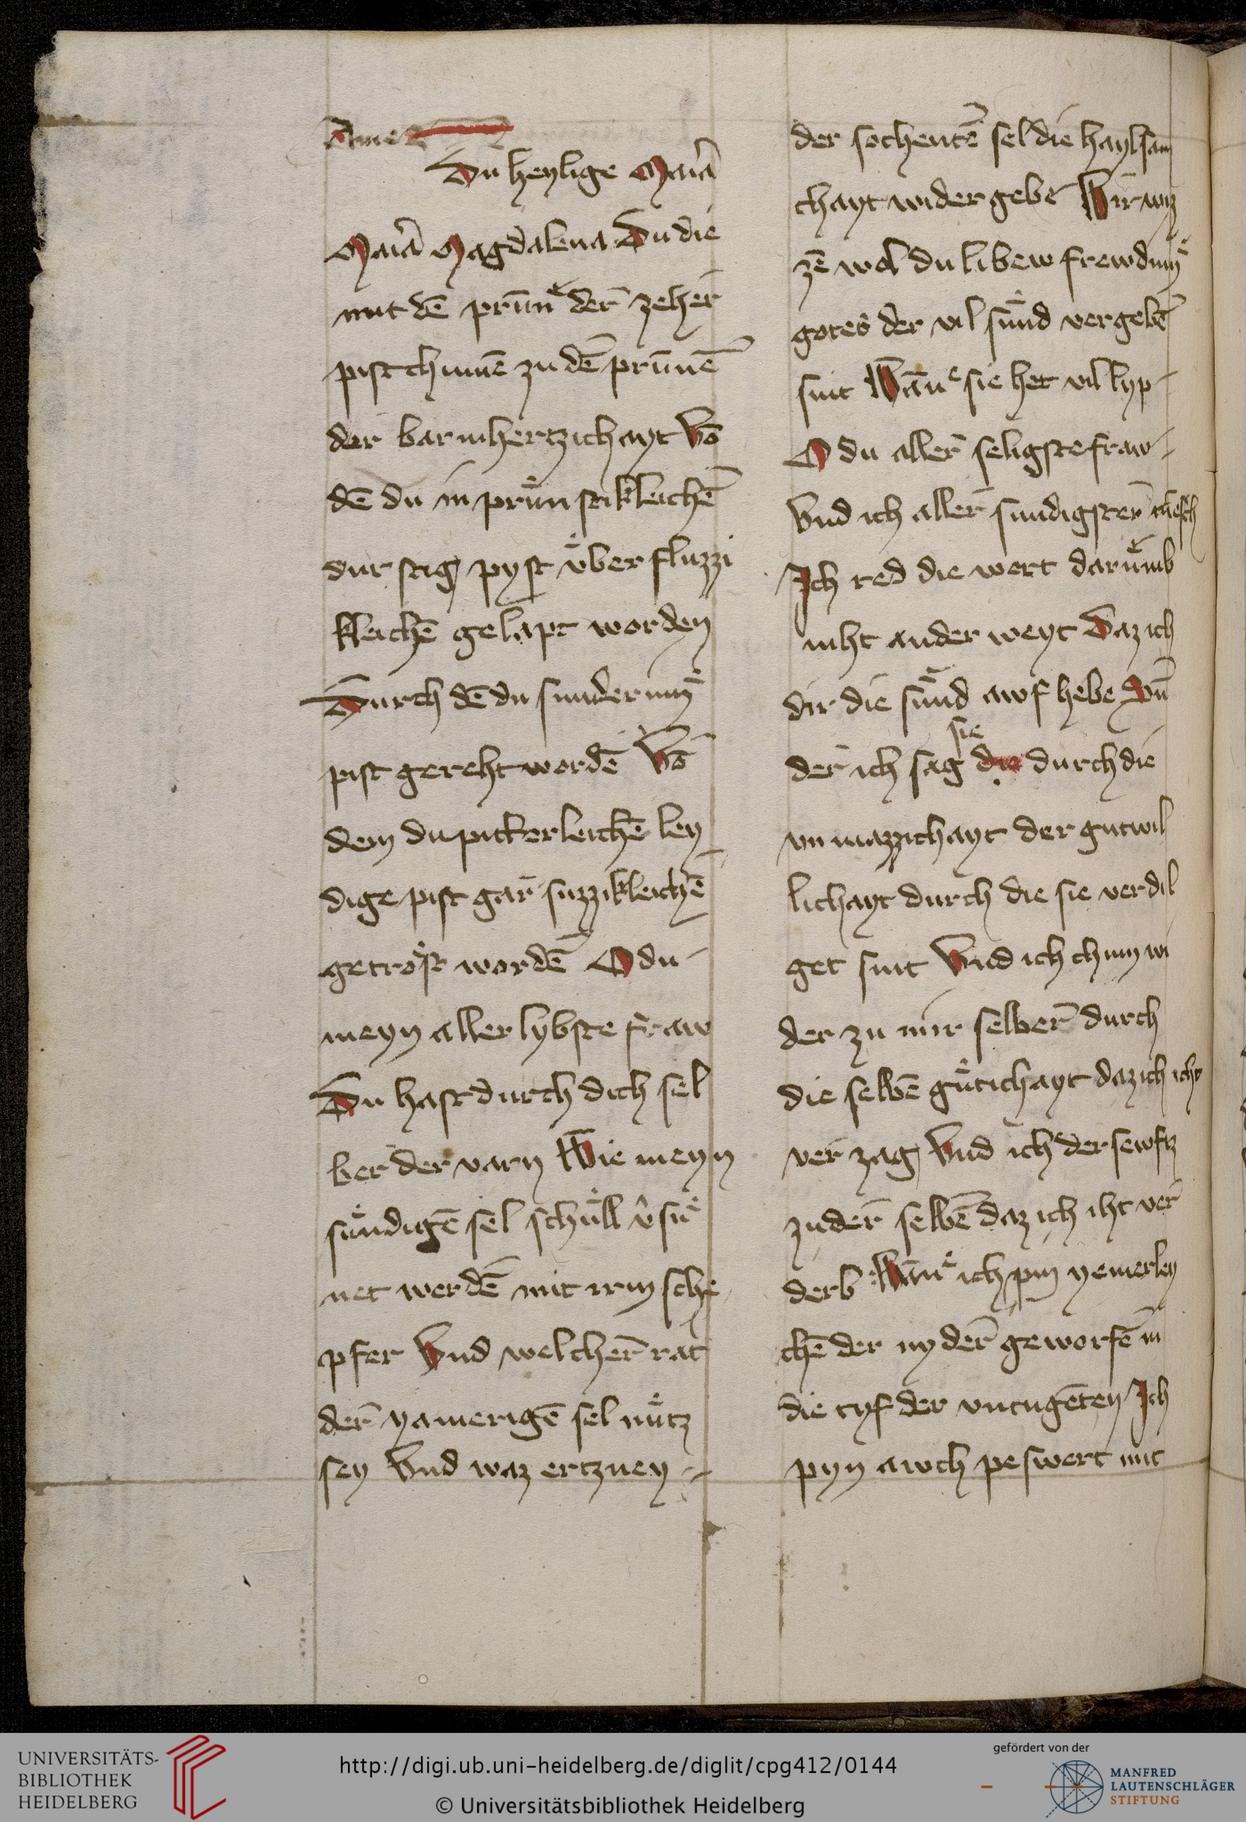 Ame
Du heylige Maiã
Maiã Magdalena Du die
mit dē průnn der zeher
pist chumē zu dē prūnē
der barmhertzichayt Vō
dē du in prünstikleichē
durstig pyst überfluzzi
kleichē gelapt worden
Durch dē du sunderinn
pist gereht wordē Vō
dem du pitterleichē ley
dige pist gar suzzikleichē
getröst wordē O du
meyn aller lybste fraw
Du hast durch dich sel
ber der varn Wie meyn
sündigē sel schüll v̂ sü
net werdē mit irm sche
pfer Vnd welcher rat
der yamerigē sel nütz
sey Vnd waz ertzney
der sechentē sel die haylsam
chayt wider gebē Wir wiz
zē wol du libew frewdinn
gotes der vil sünd vergebē
sint Wann sie het vil lyp
O du aller seligste fraw
Vnd ich aller sundigster mēsch
Ich red die wert darümb
niht ander weyt Daz ich
dir die sünd awf hebe Sūn
sie
der ich sag die durch die
vnmazzichayt der gutwil
lichayt durch die sie verdil
get sint Vnd ich chum wi
der zu mir selber durch
die selbē gütichayt daz ich iht
ver zag Vnd ich der sewftz
zu der selbē daz ich iht ver
derb Wann ich pin yemerley
chē der nyder geworfē in
die tyf der vntugēten Ich
pyn awch peswert mit
UNIVERSITÄTS-
BIBLIOTHEK
HEIDELBERG
http://digi.ub.uni-heidelberg.de/diglit/cpg412/0144
© Universitätsbibliothek Heidelberg
gefördert von der
MANFRED
LAUTENSCHLÄGER
STIFTUNG